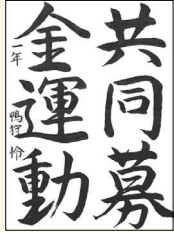 共同募
金運動
一年 鴨狩 怜